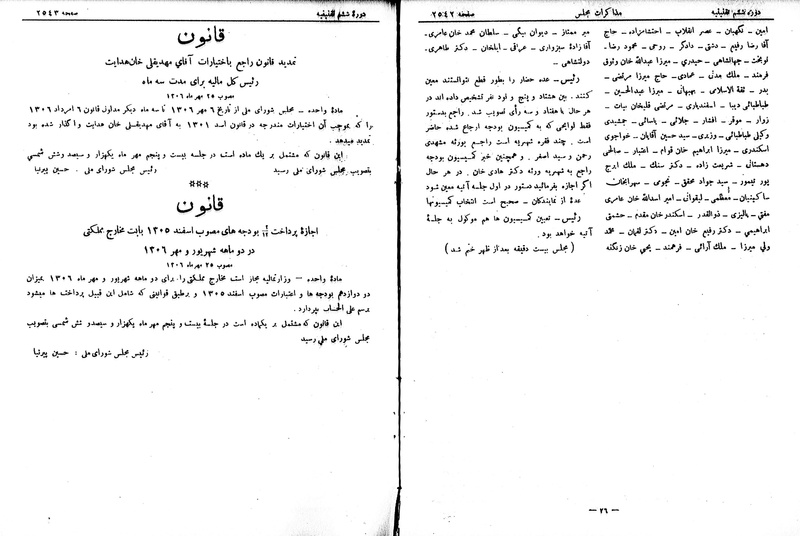 دوره ششم تقنینیه
مذاکرات مجلس
صفحه ۲۵۴۲
امین ـ نگهبان ـ عصر انقلاب ـ احتشامزاده ـ حاج
آقا رضا رفیع ـ دشتی ـ دادگر ـ روحی ـ محمود رضا ـ
نوبخت ـ جهانشاهی ـ حیدری ـ میرزا عبدالله خان وثوق
فرمند ـ ملک مدنی ـ عمادی ـ حاج میرزا مرتضی ـ
بدر ـ ثقة الاسلامی ـ بهبهانی ـ میرزا عبدالحسین ـ
طباطبائی دیبا ـ اسفندیاری ـ مرتضی قلیخان بیات ـ
زوار ـ موقر ـ افشار ـ جلائی ـ یاسائی ـ جمشیدی
وکیلی طباطبائی ـ وزیری ـ سید حسین آقایان ـ خواجوی
اسکندری ـ میرزا ابراهیم خان قوام ـ اعتبار ـ صالحی
دهستانی ـ شریعت زاده ـ دکتر سنک ـ ملک ایرج
پور تیمور ـ سید جواد محقق ـ نجومی ـ سهرابخان
ساکینیان ـ معظمی ـ لیقوانی ـ امیر اسدالله خان عامری
مفتی ـ پالیزی ـ ذوالقدر ـ اسکندرخان مقدم ـ حشمتی
ابراهیمی ـ دکتر رفیع خان امین ـ دکتر لقمان ـ محمد
ولی میرزا ـ ملک آرائی ـ فرهمند ـ یحیی خان زنگنه
میر ممتاز ـ دیوان بیگی ـ سلطان محمد خان عامری.
آقا زادۀ سبزواری ـ عراقی ـ ایلخان ـ دکتر طاهری.
دولتشاهی ـ
رئیس ـ عده حضار را بطور قطع نتوالستند معین
کنند. بین هشتاد و پنج و نود نفر تشخیص داده اند در
هر حال با هفتاد و سه رأی تصویب شد. راجع بدستور
فقط لوایحی که به کمیسیون بودجه ارجاع شده حاضر
است. چند فقره شهریه است راجع بورثه مشهدی
رحمن و سید اصغر. و همچنین خبر کمیسیون بودجه
راجع به شهریه ورثه دکتر هادی خان. در هر حال
اگر اجازه بفرمائید دستور در اول جلسه آتیه معین شود
عده از نمایندگان ـ صحیح است انتخاب کمیسیونها
رئیس ـ تعیین کمیسیون ها هم موکول به جلسۀ
آتیه خواهد بود.
( مجلس بیست دقیقه بعد از ظهر ختم شد )
— ۲۶ —
دورۀ ششم تقنینیه
صفحه ۲۵۴۳
قانون
تمدید قانون راجع باختیارات آقای مهدیقلی خان هدایت
رئیس کل مالیه برای مدت سه ماه
مصوب ۲۵ مهر ماه ۱۳۰۶
مادۀ واحده ـ مجلس شورای ملی از تاریخ ۶ مهر ۱۳۰۶ تا سه ماه دیگر مدلول قانون ۶ امرداد ۱۳۰۶
را که بموجب آن اختیارات مندرجه در قانون اسد ۱۳۰۱ به آقای مهدیقلی خان هدایت واگذار شده بود
تمدید میدهد.
این قانون که مشتمل بر یك ماده است در جلسه بیست و پنجم مهر ماه یکهزار و سیصد و شش شمسی
بتصویب مجلس شورای ملی رسید
رئیس مجلس شورای ملی. حسین پیرنیا
***
قانون
اجازۀ پرداخت بودجه های مصوب اسفند ۱۳۰۵ بابت مخارج مملکتی
در دو ماهه شهریور و مهر ۱۳۰۶
مصوب ۲۵ مهر ماه ۱۳۰۶
مادۀ واحده — وزارتمالیه مجاز است مخارج مملکتی را برای دو ماهه شهریور و مهر ماه ۱۳۰۶ بمیزان
دو دوازدهم بودجه ها و اعتبارات مصوب اسفند ۱۳۰۵ و برطبق قوانینی که شامل این قبیل پرداخت ها میشود
برسم علی الحساب بپردازد.
این قانون که مشتمل بر یکماده است در جلسۀ بیست و پنجم مهر ماه یکهزار و سیصد و شش شمسی بتصویب
مجلس شورای ملی رسید
رئیس مجلس شورای ملی : حسین پیرنیا